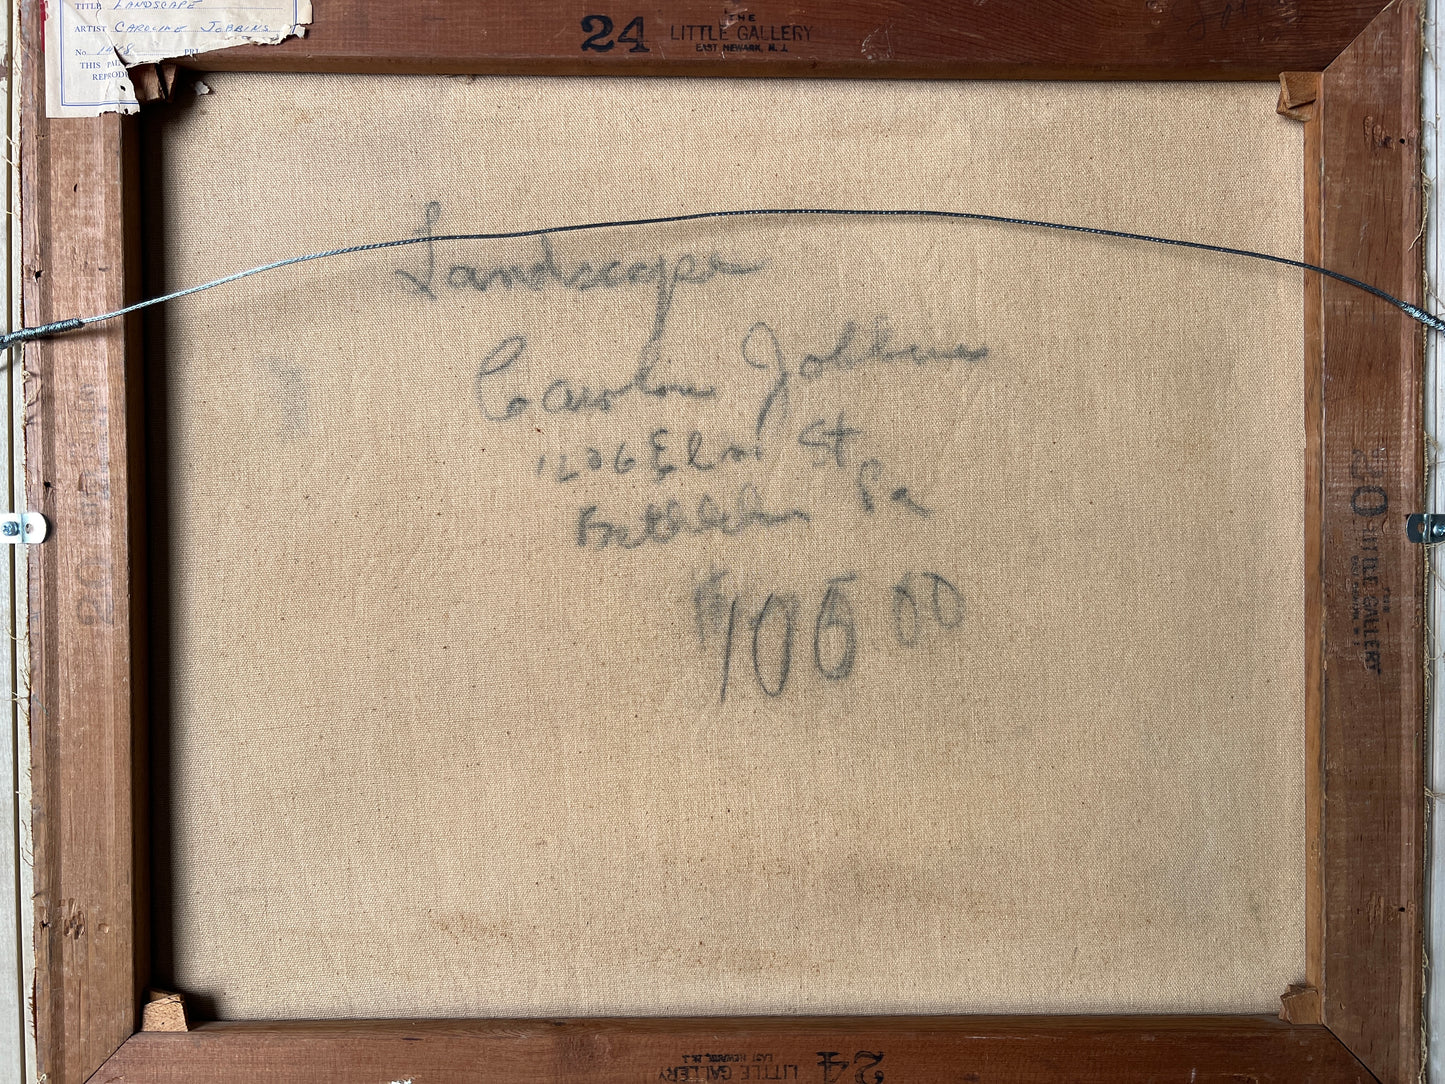 TITLE LANDSCAPE
ARTIST CAROLINE JOBBINS
No. 1418 PRI
THIS PAI
REPRODU
24 THE
LITTLE GALLERY
EAST NEWARK, N. J.
Landscape
Caroline Jobbins
1206 Elm St
Bethlehem Pa
$100.00
THE
LITTLE GALLERY
EAST NEWARK, N. J.
20
24 LITTLE GALLERY
EAST NEWARK, N. J.